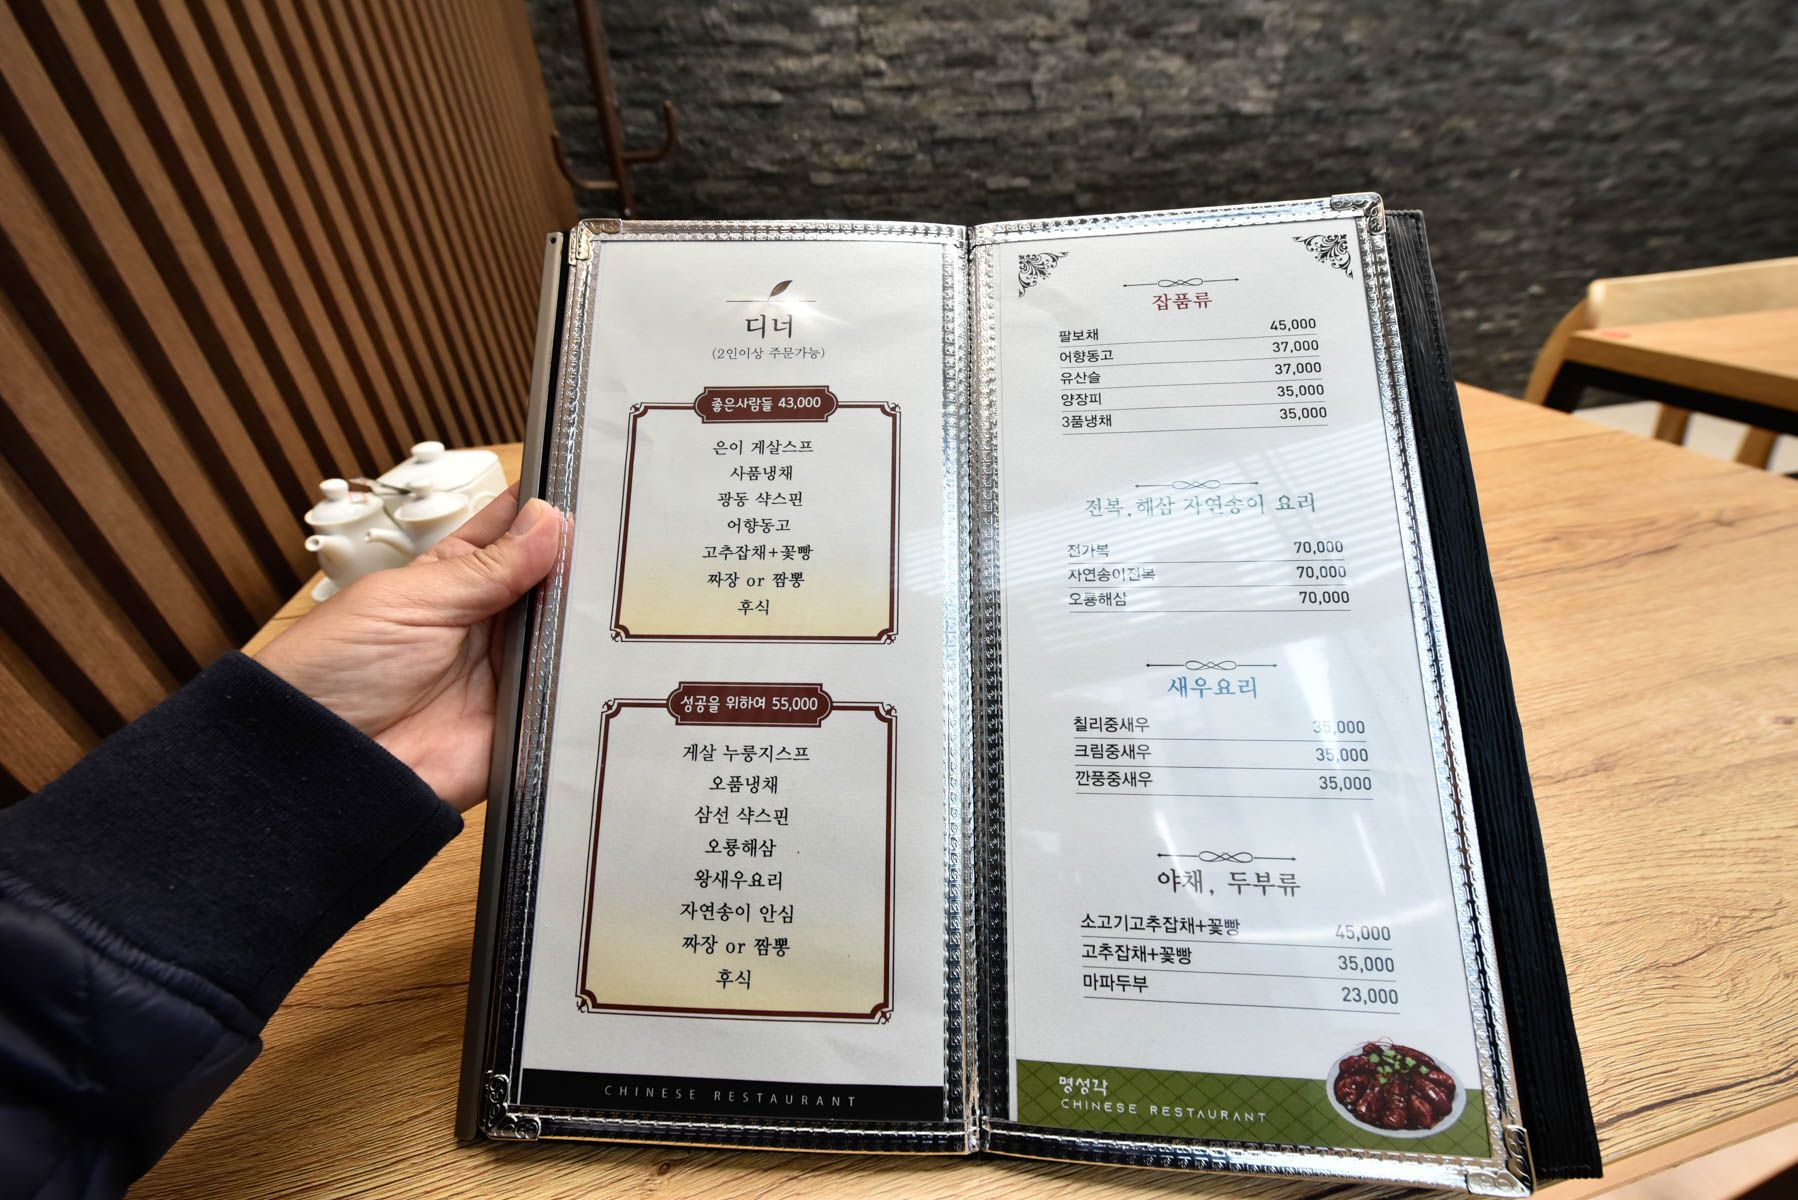 디너
(2인이상 주문가능)
좋은사람들 43,000
은이 게살스프
사품냉채
광동 샥스핀
어향동고
고추잡채+꽃빵
짜장 or 짬뽕
후식
성공을 위하여 55,000
게살 누룽지스프
오품냉채
삼선 샥스핀
오룡해삼
왕새우요리
자연송이 안심
짜장 or 짬뽕
후식
CHINESE RESTAURANT
잡품류
팔보채 45,000
어향동고 37,000
유산슬 37,000
양장피 35,000
3품냉채 35,000
전복, 해삼 자연송이 요리
전가복 70,000
자연송이전복 70,000
오룡해삼 70,000
새우요리
칠리중새우 35,000
크림중새우 35,000
깐풍중새우 35,000
야채, 두부류
소고기고추잡채+꽃빵 45,000
고추잡채+꽃빵 35,000
마파두부 23,000
명성각
CHINESE RESTAURANT